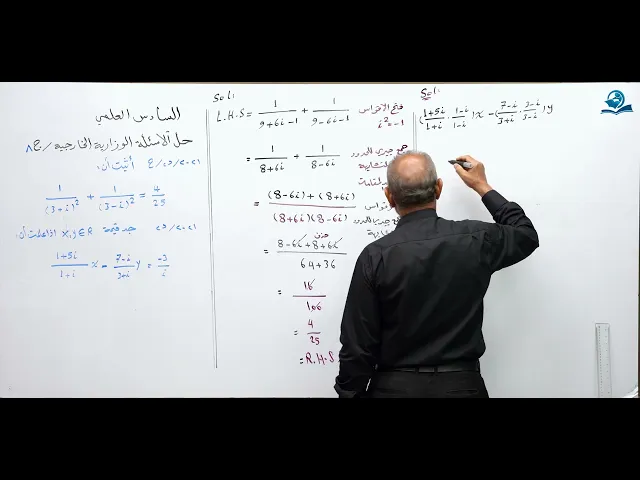 السادس العلمي
حل الأسئلة الوزارية الخارجية / ح٨
أثبت أن:
1/(3+i)² + 1/(3-i)² = 4/25
جد قيمة x,y∈R اذا علمت أن:
1+5i/1+i x - 7-i/3+i y = -3/i
Sol:
L.H.S = 1/9+6i-1 + 1/9-6i-1 فتح الأقواس i²=-1
= 1/8+6i + 1/8-6i
= (8-6i)+(8+6i)/(8+6i)(8-6i)
= 8-6i+8+6i/64+36
= 16/100
= 4/25
= R.H.S
Sol:
(1+5i/1+i · 1-i/1-i)x - (7-i/3+i · 3-i/3-i)y